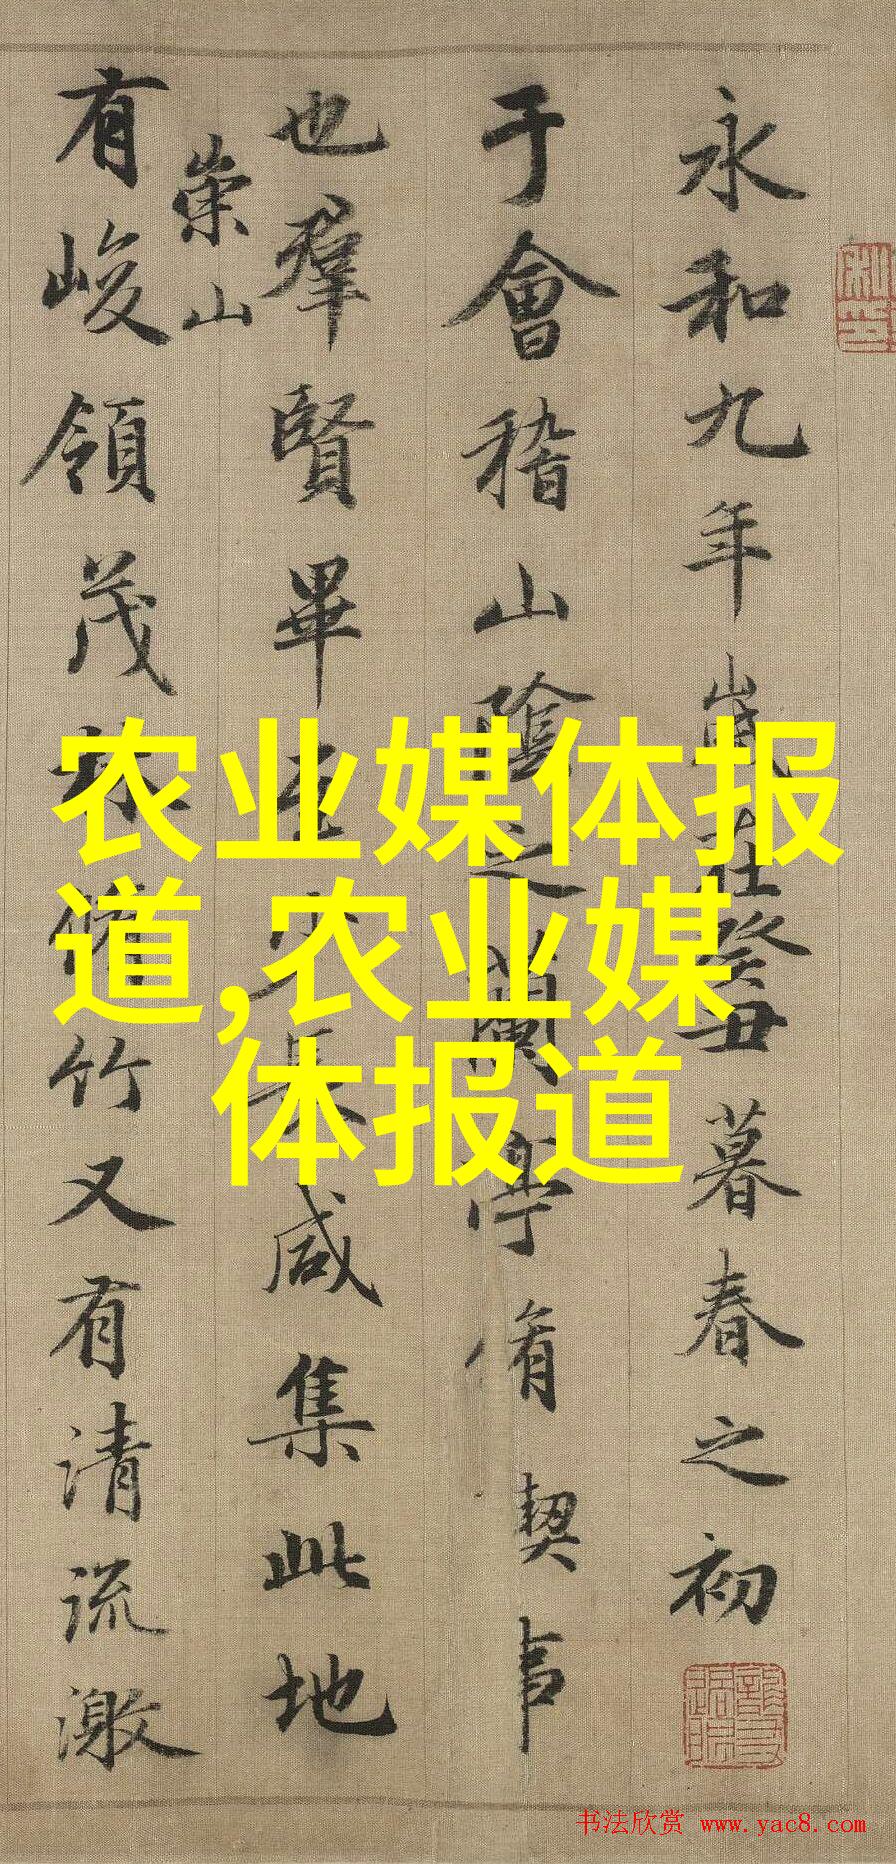 永和九年歲在癸丑暮春之初
于會稽山陰之蘭亭脩契事
也羣賢畢至少長咸集此地
崇山
有峻領茂林脩竹又有清流激
农业媒体报
道,农业媒
体报道
书法欣赏 www.yac8.com